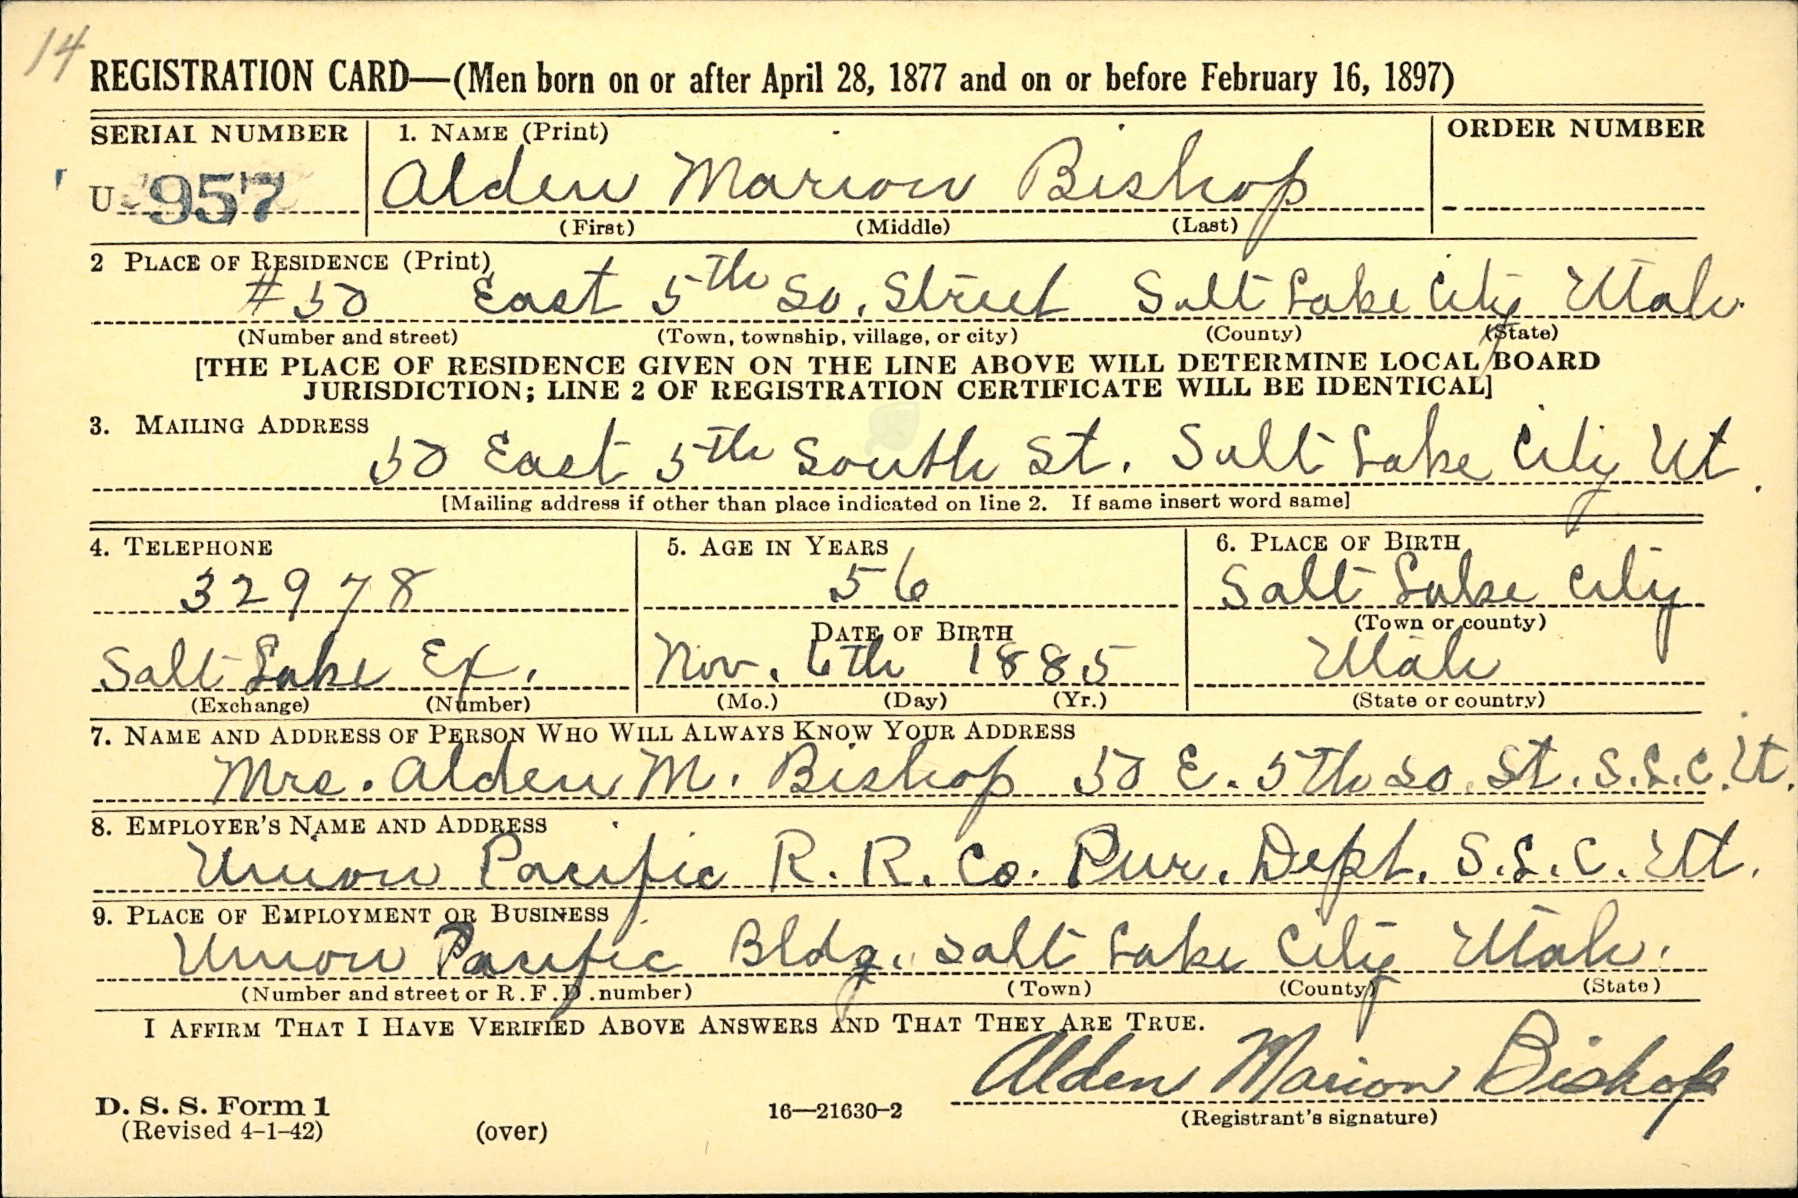 14
REGISTRATION CARD—(Men born on or after April 28, 1877 and on or before February 16, 1897)
SERIAL NUMBER 1. NAME (Print) ORDER NUMBER
U 957 Alden Marion Bishop
(First) (Middle) (Last)
2 PLACE OF RESIDENCE (Print)
#50 East 5th So. Street Salt Lake City Utah
(Number and street) (Town, township, village, or city) (County) (State)
[THE PLACE OF RESIDENCE GIVEN ON THE LINE ABOVE WILL DETERMINE LOCAL BOARD
JURISDICTION; LINE 2 OF REGISTRATION CERTIFICATE WILL BE IDENTICAL]
3. MAILING ADDRESS
50 East 5th South St. Salt Lake City Ut.
[Mailing address if other than place indicated on line 2. If same insert word same]
4. TELEPHONE 5. AGE IN YEARS 6. PLACE OF BIRTH
32978 56 Salt Lake City
DATE OF BIRTH (Town or county)
Salt Lake Ex. Nov. 6th 1885 Utah
(Exchange) (Number) (Mo.) (Day) (Yr.) (State or country)
7. NAME AND ADDRESS OF PERSON WHO WILL ALWAYS KNOW YOUR ADDRESS
Mrs. Alden M. Bishop 50 E. 5th So. St. S.L.C. Ut.
8. EMPLOYER'S NAME AND ADDRESS
Union Pacific R. R. Co. Pur. Dept. S.L.C. Ut.
9. PLACE OF EMPLOYMENT OR BUSINESS
Union Pacific Bldg. Salt Lake City Utah.
(Number and street or R. F. D. number) (Town) (County) (State)
I AFFIRM THAT I HAVE VERIFIED ABOVE ANSWERS AND THAT THEY ARE TRUE.
Alden Marion Bishop
D. S. S. Form 1 16—21630-2 (Registrant's signature)
(Revised 4-1-42) (over)